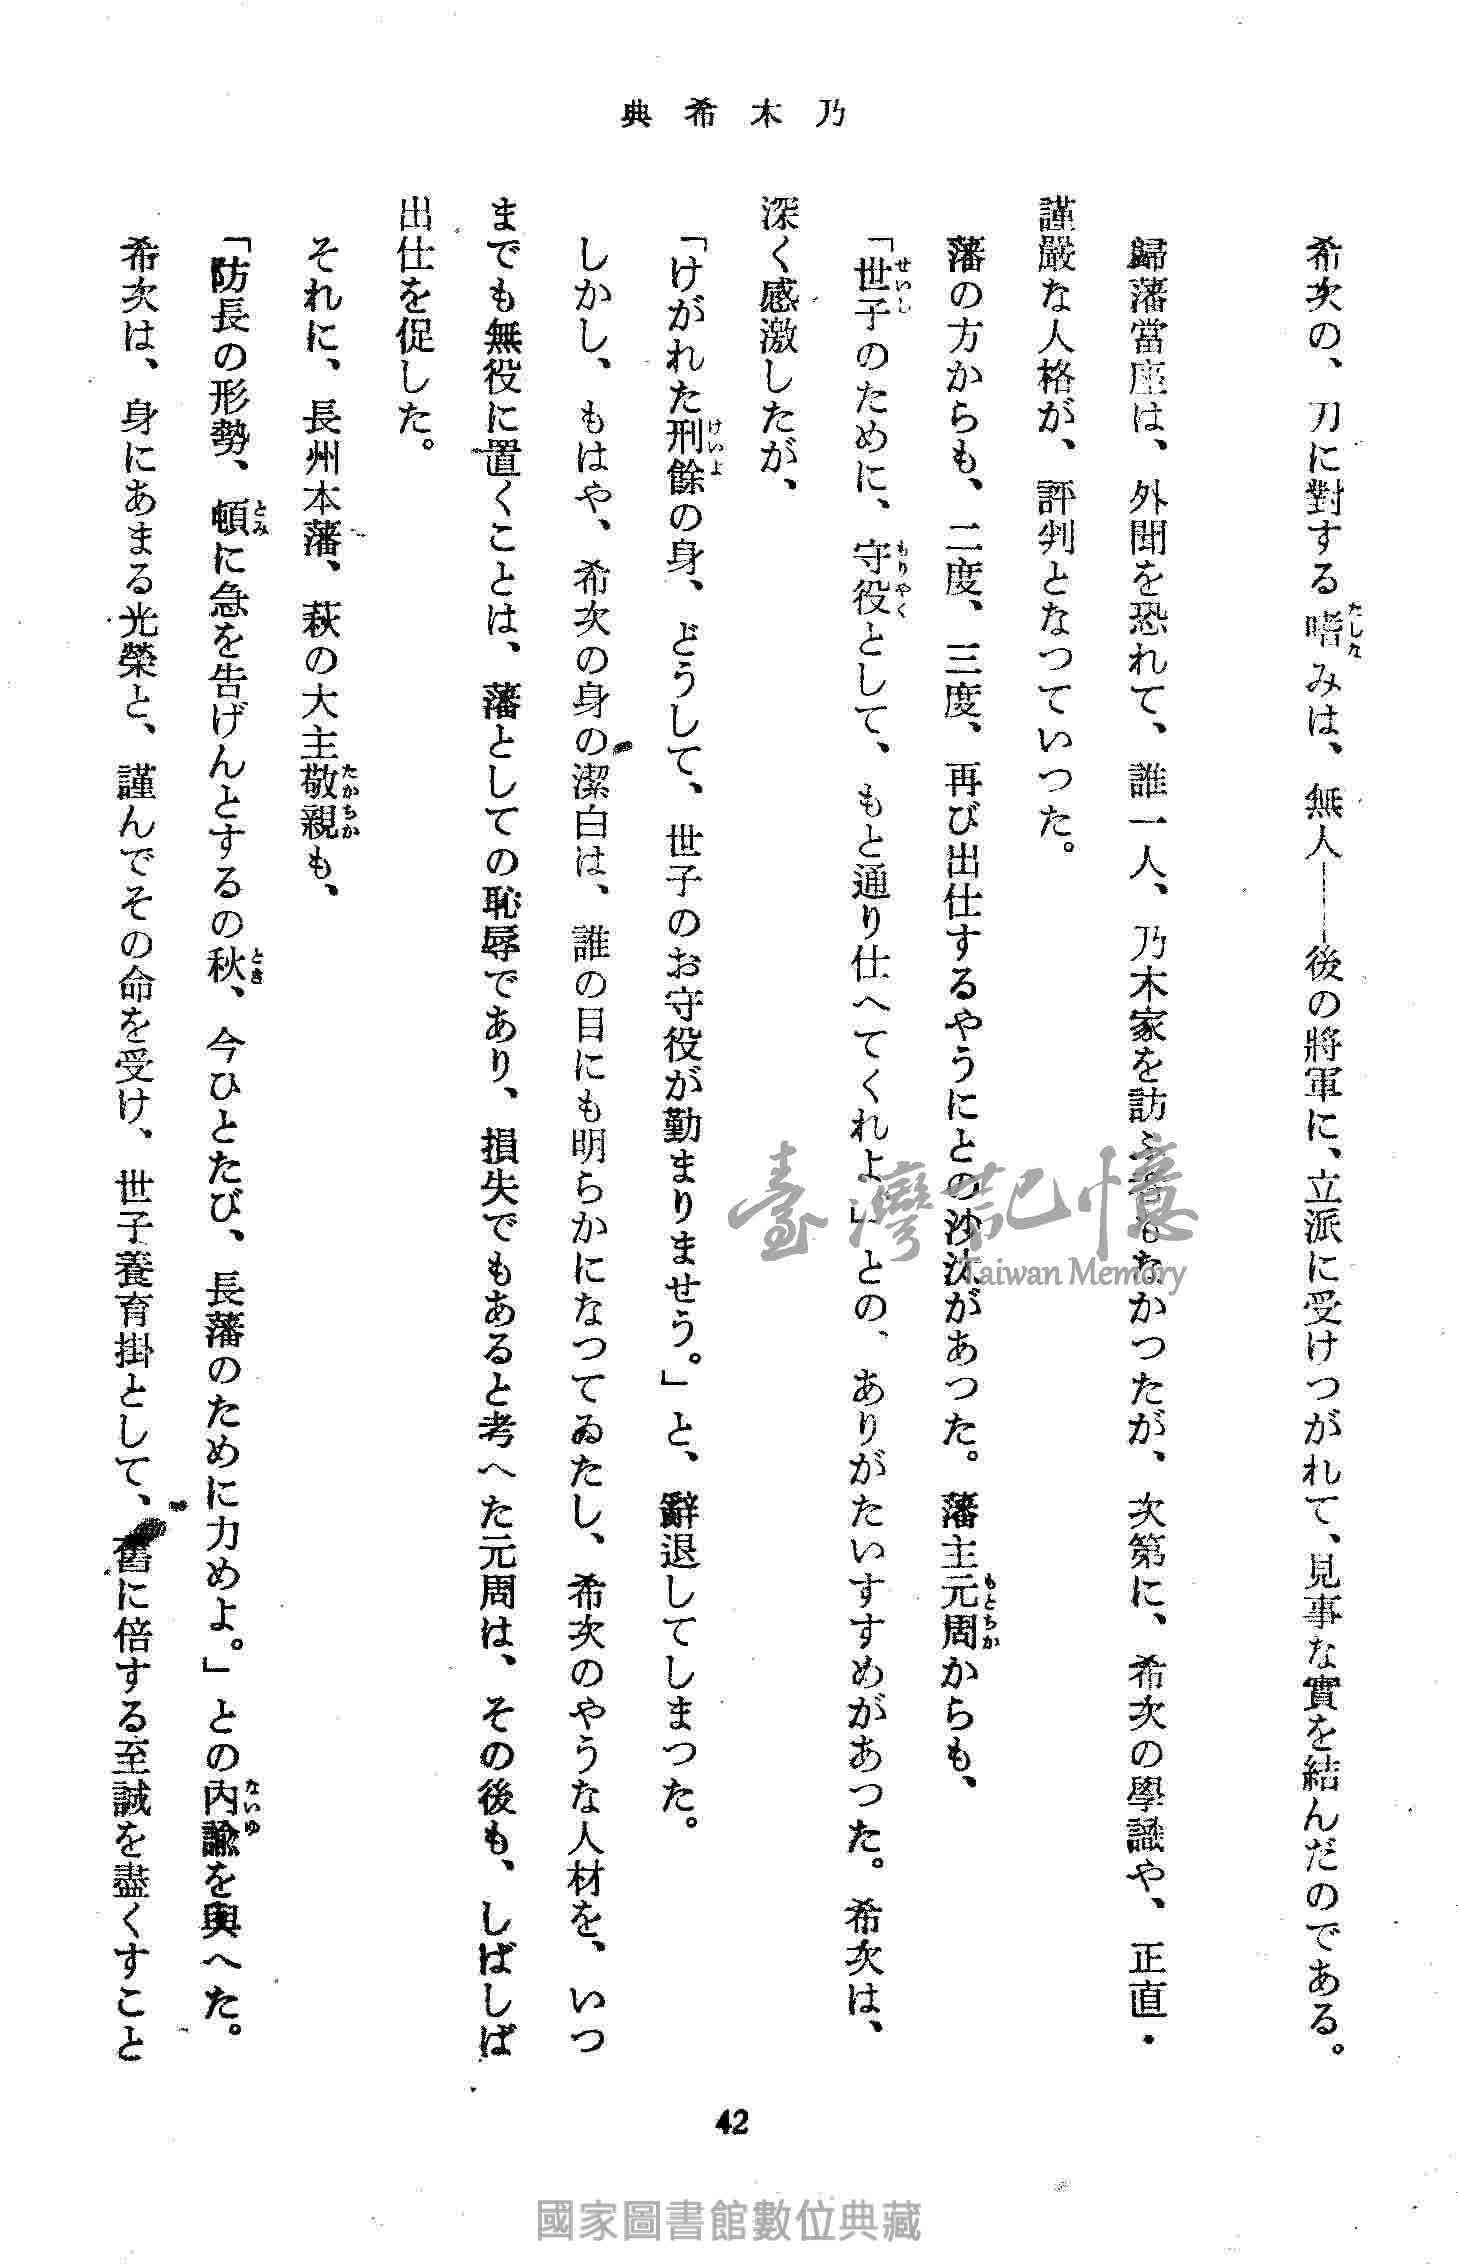 乃木希典
希次の、刀に對する嗜みは、無人――後の將軍に、立派に受けつがれて、見事な實を結んだのである。
たしな
歸藩當座は、外聞を恐れて、誰一人、乃木家を訪ふ者もなかつたが、次第に、希次の學識や、正直・
謹嚴な人格が、評判となつていつた。
藩の方からも、二度、三度、再び出仕するやうにとの沙汰があつた。藩主元周からも、
もとちか
「世子のために、守役として、もと通り仕へてくれよ」との、ありがたいすすめがあつた。希次は、
せいし
もりやく
深く感激したが、
「けがれた刑餘の身、どうして、世子のお守役が勤まりませう。」と、辭退してしまつた。
けいよ
しかし、もはや、希次の身の潔白は、誰の目にも明らかになつてゐたし、希次のやうな人材を、いつ
までも無役に置くことは、藩としての恥辱であり、損失でもあると考へた元周は、その後も、しばしば
出仕を促した。
それに、長州本藩、萩の大主敬親も、
たかちか
「防長の形勢、頓に急を告げんとするの秋、今ひとたび、長藩のために力めよ。」との內諭を與へた。
とみ
とき
ないゆ
希次は、身にあまる光榮と、謹んでその命を受け、世子養育掛として、舊に倍する至誠を盡くすこと
42
臺灣記憶
Taiwan Memory
國家圖書館數位典藏